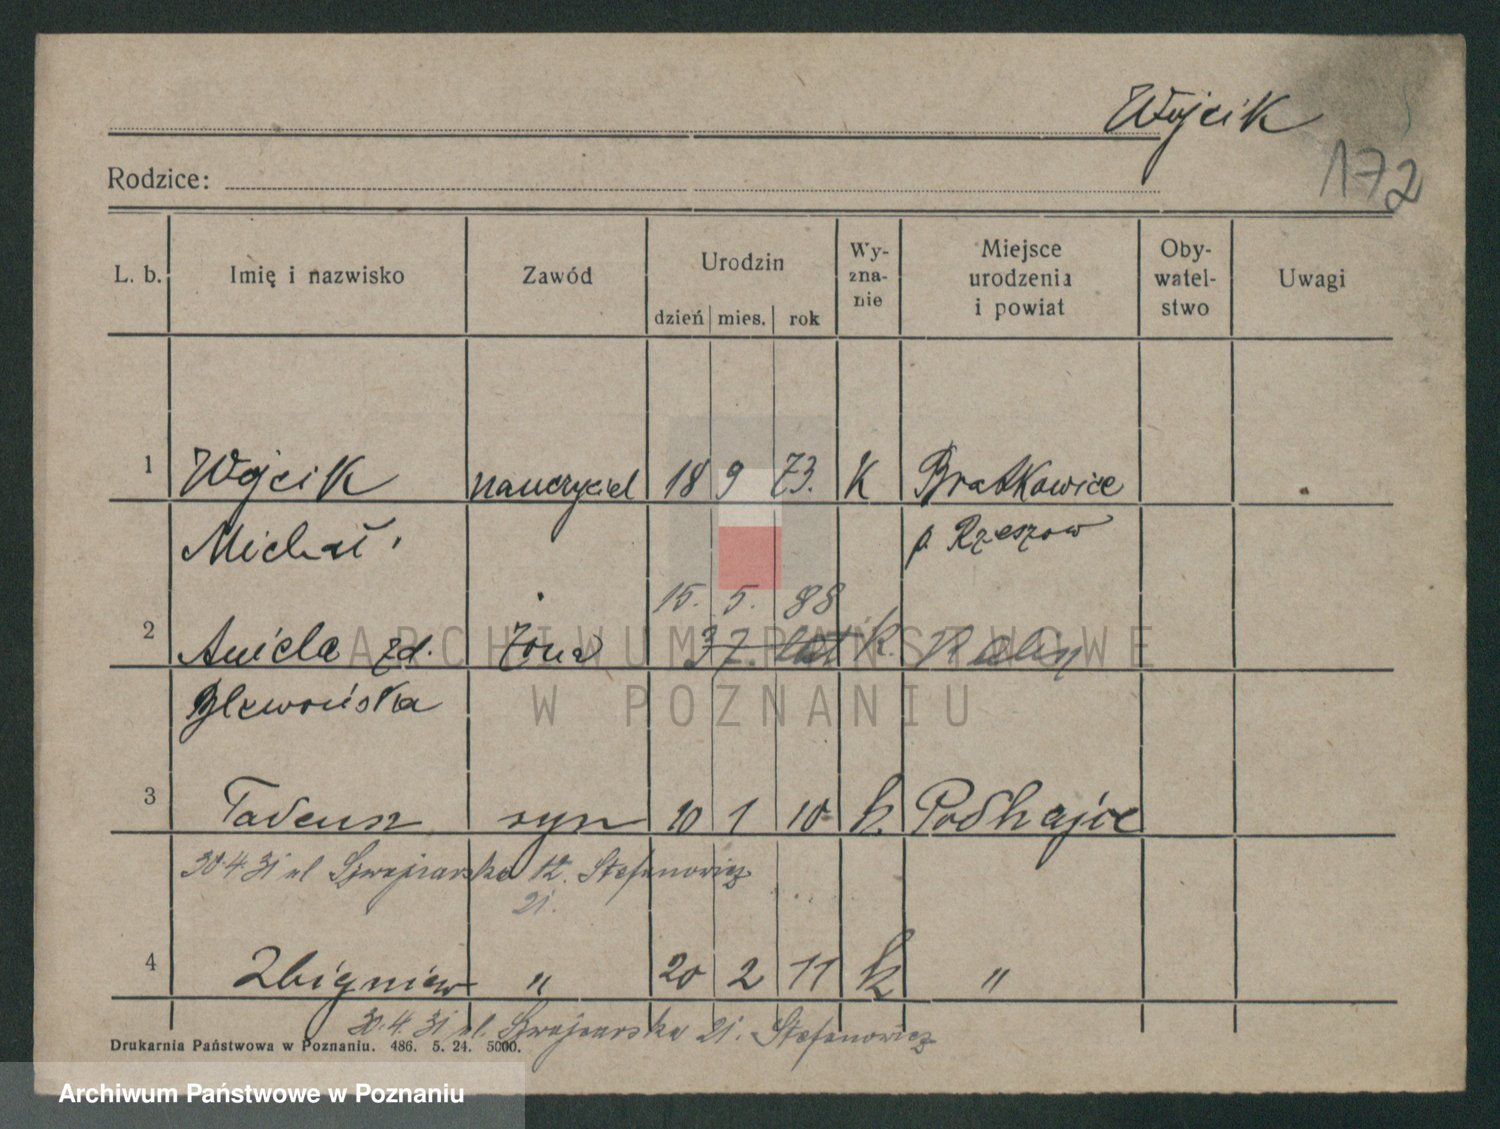 Wojcik
172
Rodzice:
L. b. Imię i nazwisko Zawód Urodzin dzień mies. rok Wy-zna-nie Miejsce urodzenia i powiat Oby-watel-stwo Uwagi
1 Wojcik nauczyciel 18 9 73. K Bratkowice
Michał, p. Rzeszow
15. 5. 88
2 Aniela zd. żona 37. lat k.
3 Tadeusz syn 10 1 10 k. Podhajce
30.4.31 ul Szwajcarska 12. Stefanowicz
21.
4 Zbigniew " 20 2 11 k "
30.4.31 ul. Szwajcarska 21. Stefanowicz
Drukarnia Państwowa w Poznaniu. 486. 5. 24. 5000.
ARCHIWUM PAŃSTWOWE
W POZNANIU
Archiwum Państwowe w Poznaniu